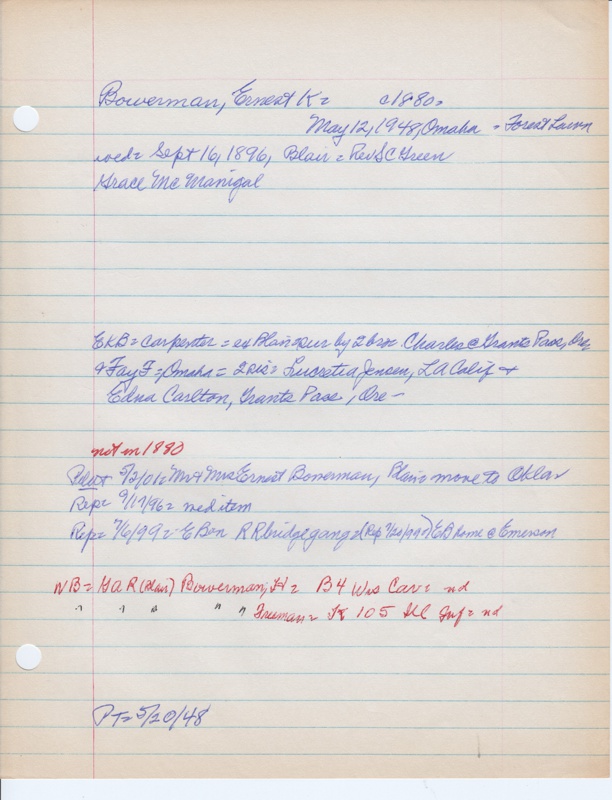 Bowerman, Ernest K= c1880=
May 12, 1948, Omaha = Forest Lawn
wed= Sept 16, 1896, Blair = Rev SC Green
Grace McManigal
EKB= carpenter = ex Blair= sur by 2 bro= Charles @ Grants Pass, Ore
& Fay F=, Omaha = 2 sis= Lucretia Jensen, LA Calif &
Edna Carlton, Grants Pass, Ore-
not in 1880
5/2/01= Mr & Mrs Ernest Bowerman, Blair= move to Okla
Rep= 9/17/96= wed item
Rep= 7/6/99= EB on RR bridge gang (Rep 7/20/99) EB home @ Emerson
NB= GAR (Blair) Bowerman, H= B 4 Wis Cav= nd
" " " " " Freeman= K 105 Ill Inf= nd
PT= 5/20/48